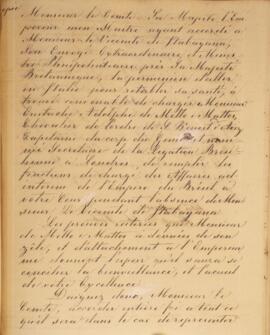 Monsieur le Comte. Sa Majesté l'Em-
pereur mon Maitre ayant accordé à
Monsieur le Vicomte de Itabayana,
Son Envoyé Extraordinaire et Minis-
tre Plenipotentiaire près Sa Majesté
Britannique, la permission d'aller
en Italie pour rétablir sa santé, a
trouvé convenable de charger Monsieur
Eustache Adolphe de Mello e Mattos,
Chevalier de l'ordre de S. Benoit d'Aviz
Capitaine du corps du Genie et nom-
mé Secretaire de la Legation Brési-
lienne à Londres, de remplir les
fonctions de chargé des Affaires ad
interim de l'Empire du Brésil à
votre Cour pendant l'absence de Mon-
sieur le Vicomte de Itabayana
Les preuves réiterées que Monsieur
de Mello e Mattos a données de son
zèle, et d'attachement à l'Empereur
me donnent l'espoir qu'il saura se
concilier la bienveillance, et l'accueil
de votre Excellence
Daignez donc, Monsieur le
Comte, accorder entière foi à tout ce
qu'il sera dans le cas de représenter